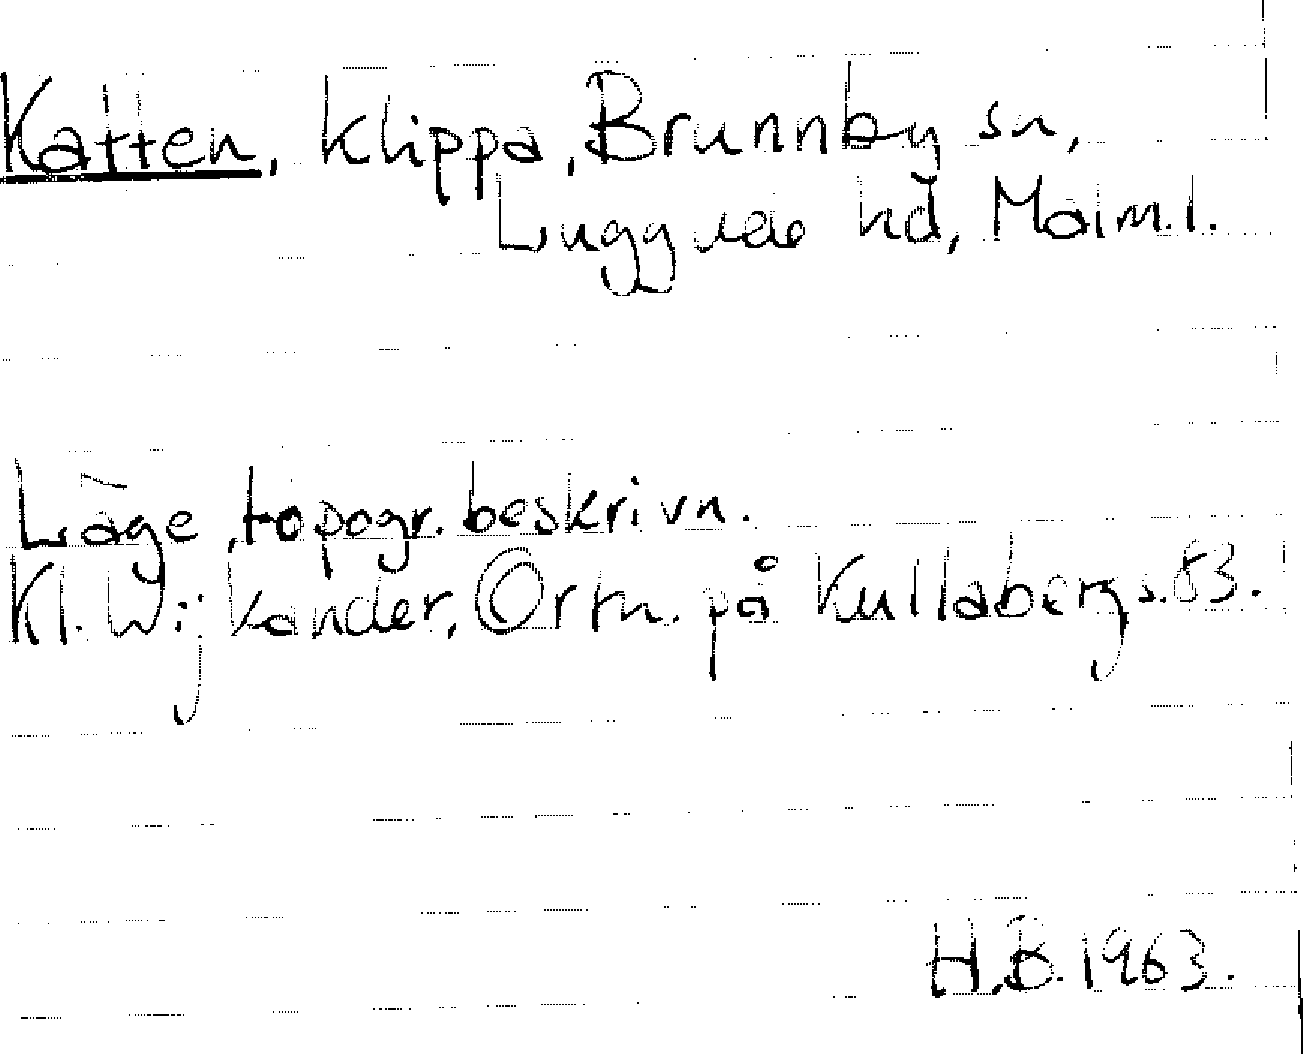 Katten, klippa, Brunnby sn,
Luggude hd, Malm.l.
Läge, topogr. beskrivn.
Kl. Wijkander, Ortn. på Kullaberg s. 53.
H.B. 1963.